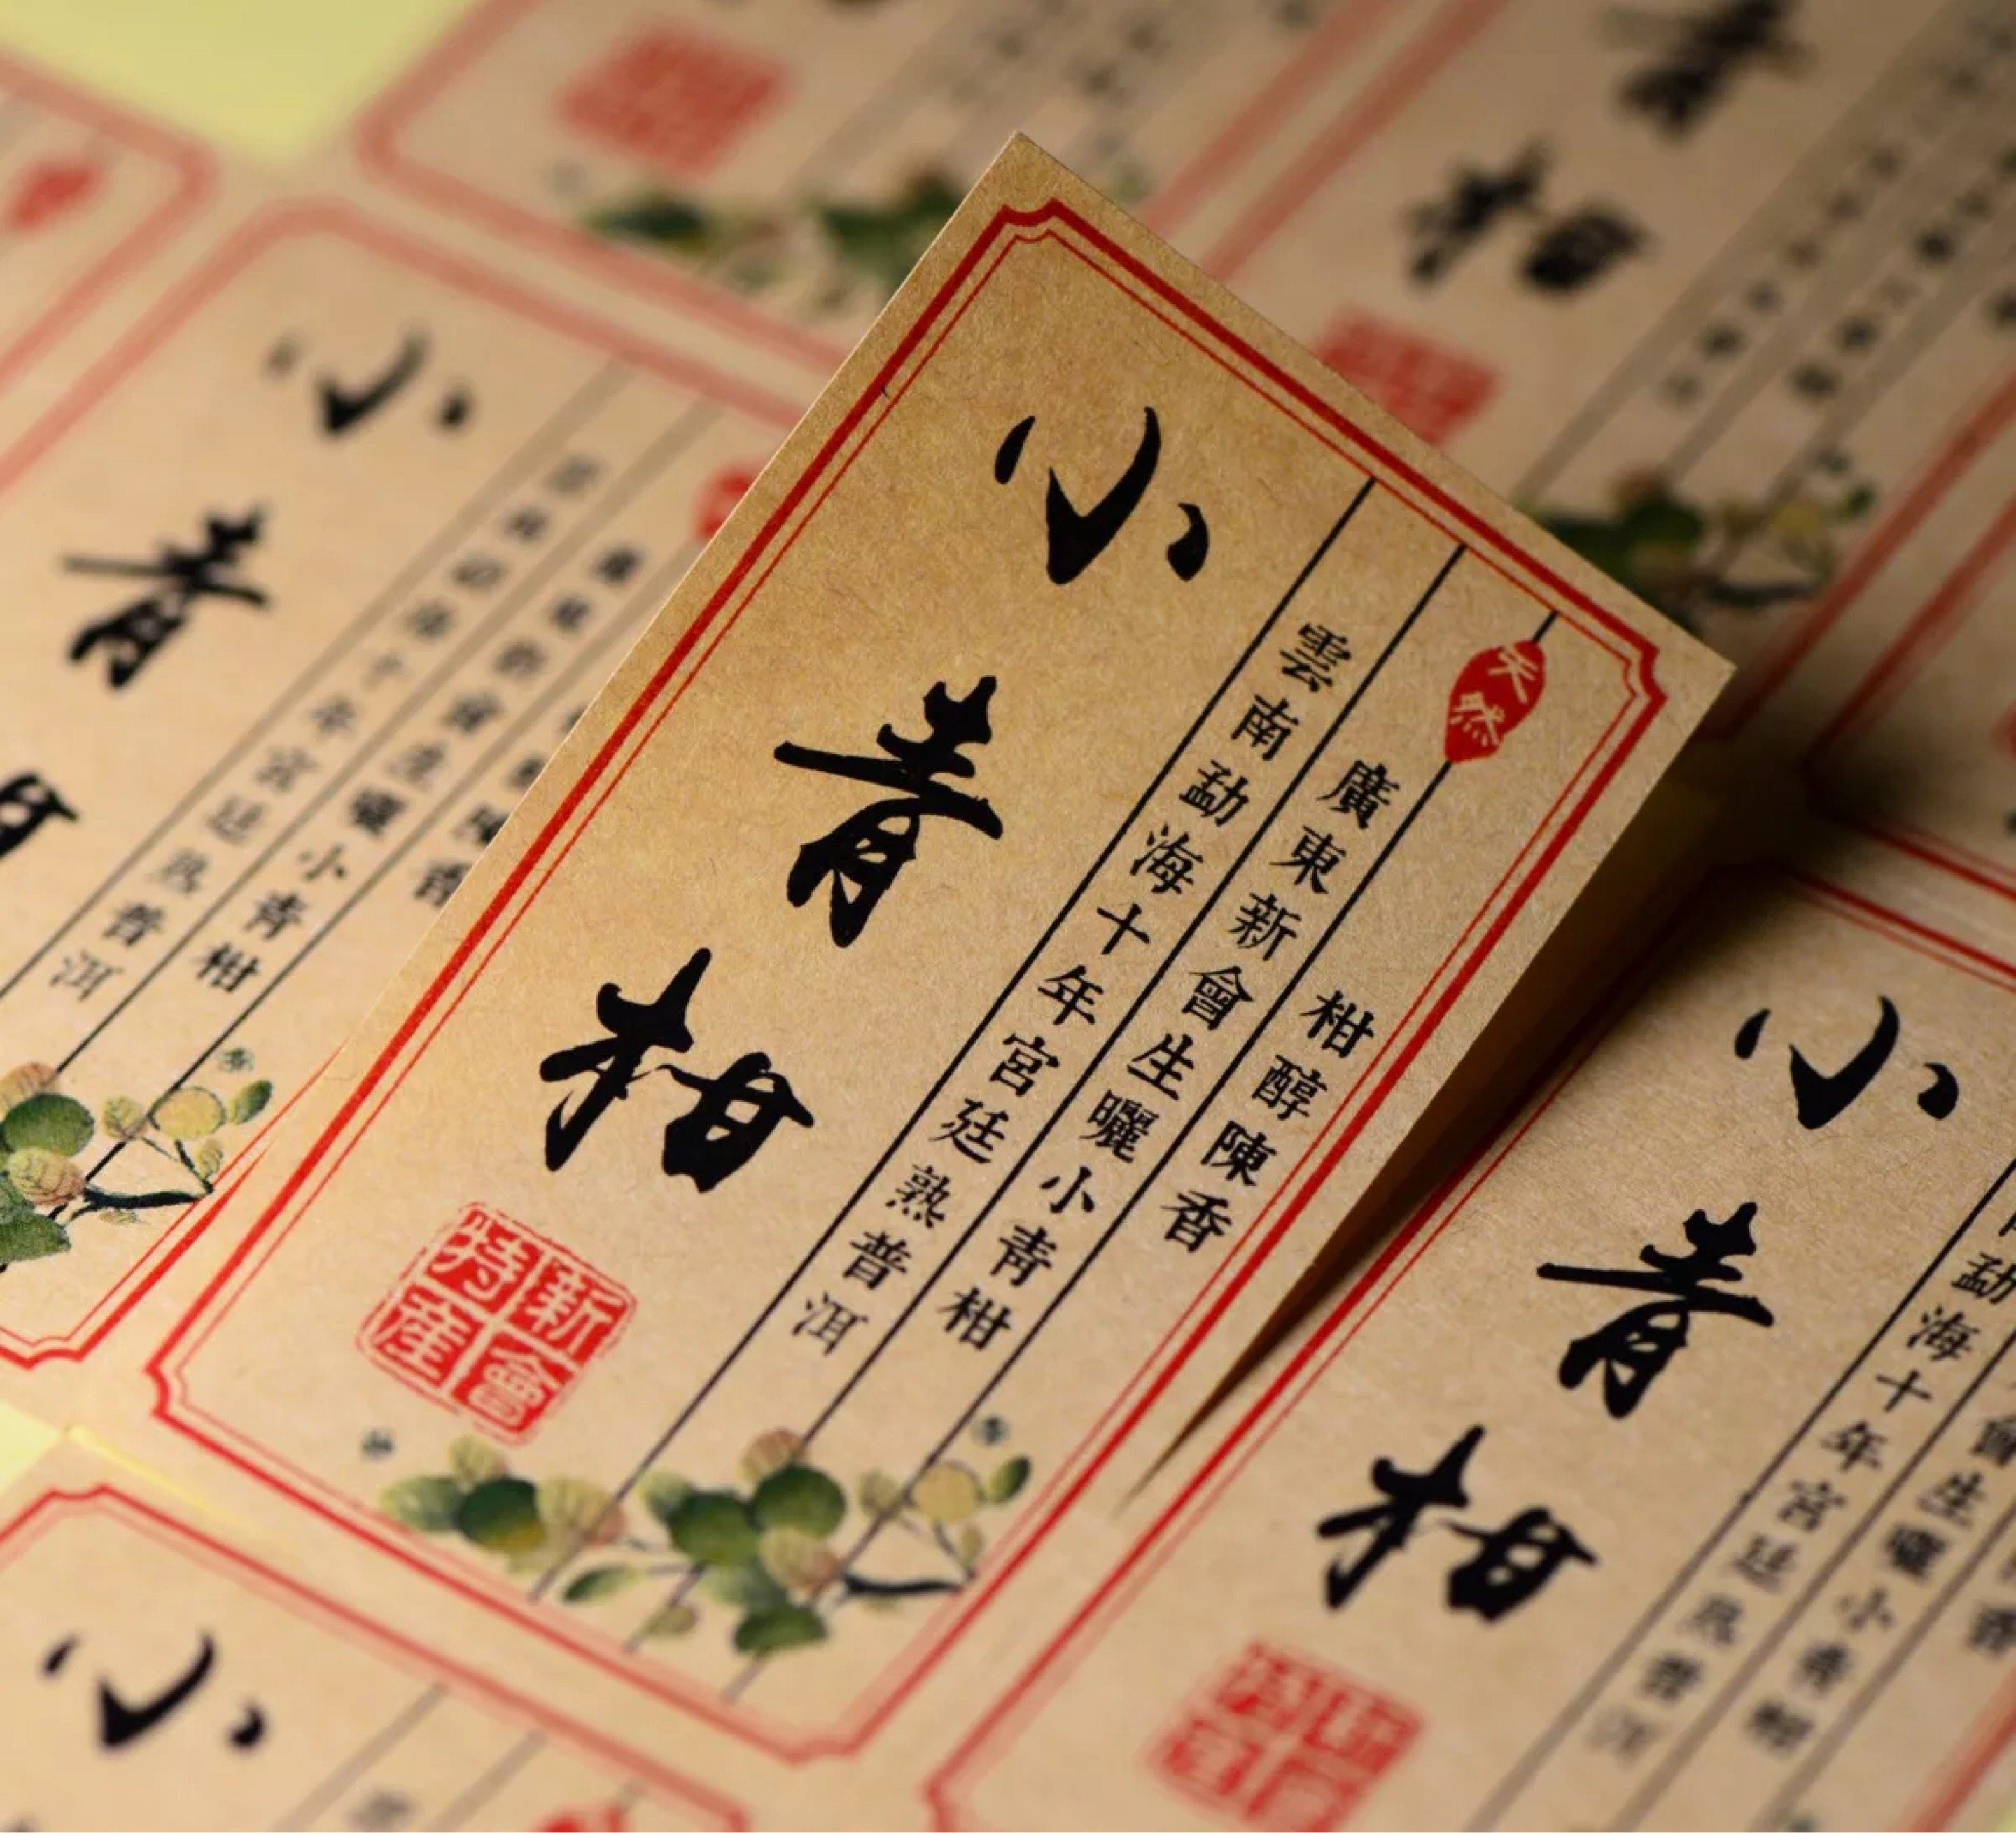 天然
柑醇陳香
廣東新會生曬小青柑
雲南勐海十年宮廷熟普洱
小青柑
新會特產
小青柑
勐海十年宮廷熟普洱
會生曬小青柑
香
小青
十年宮廷熟普洱
生曬小青柑
陳香
小
青柑